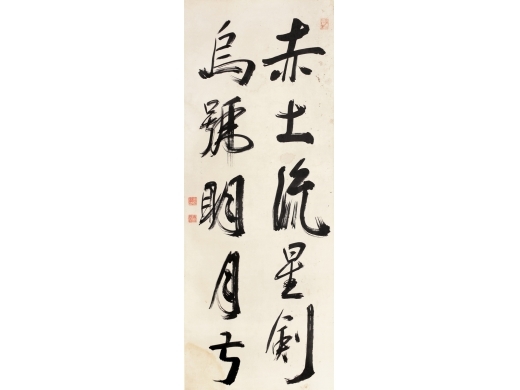 赤土流星劍
烏號明月弓